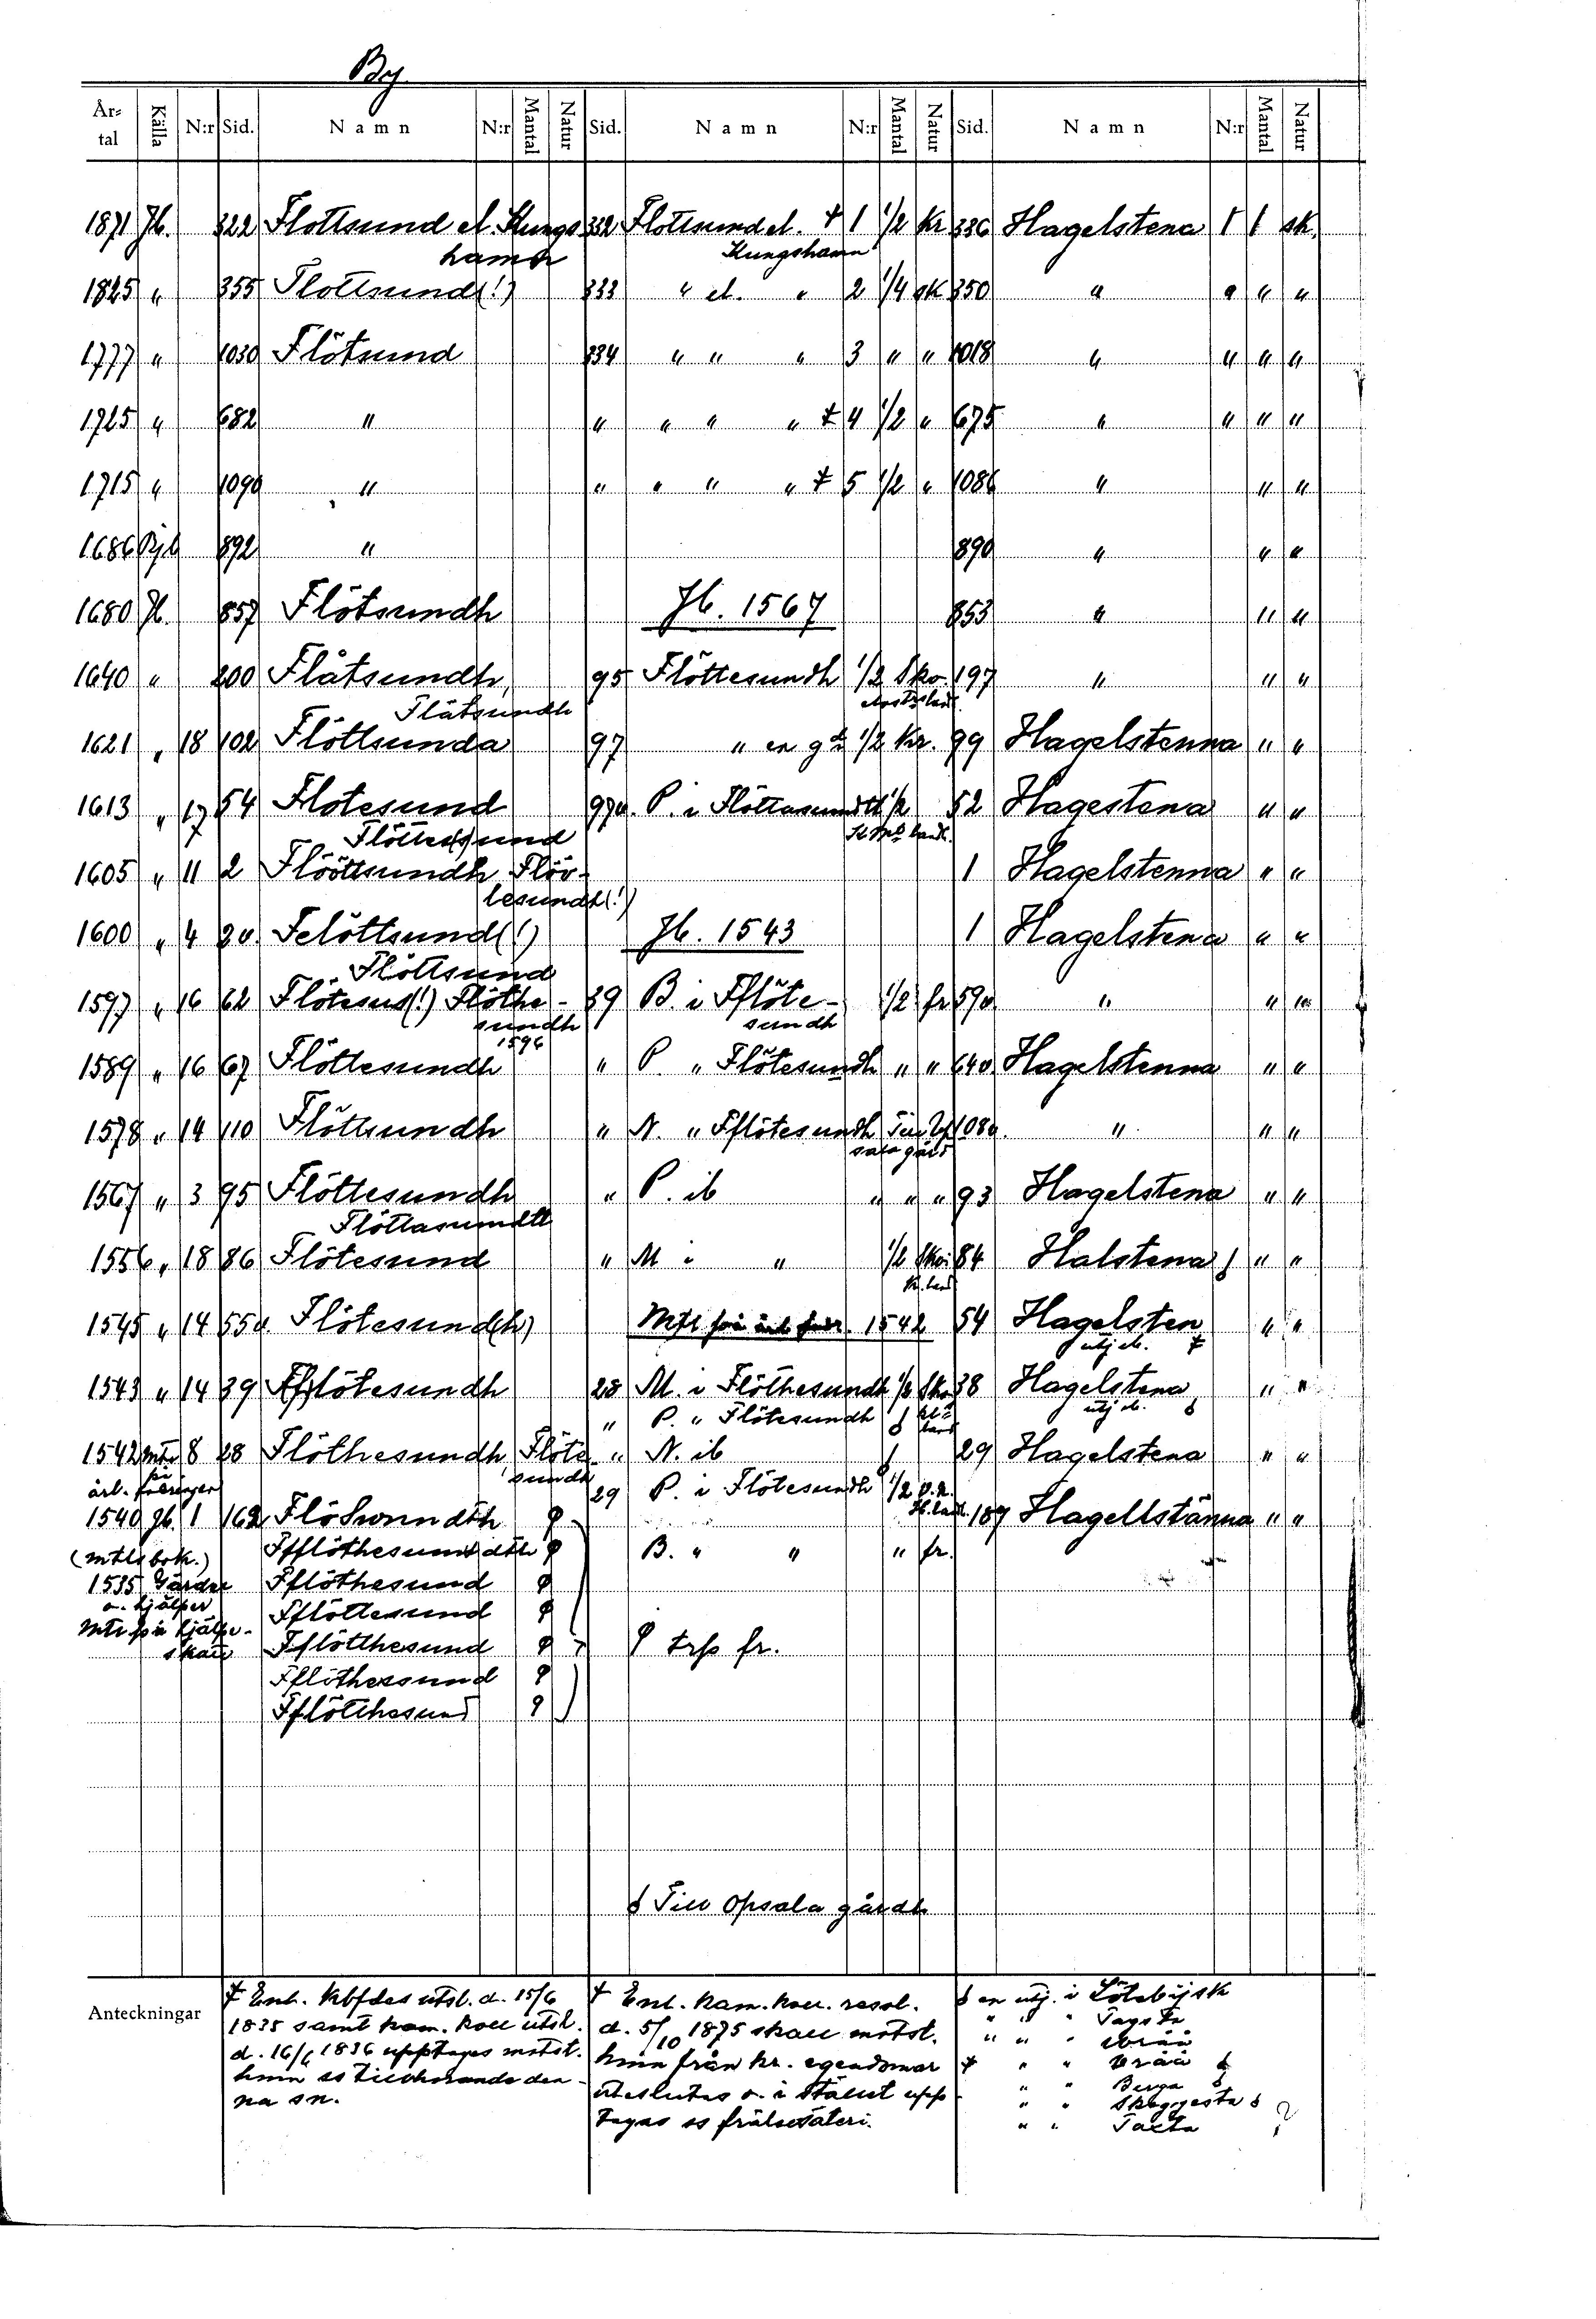 By
År-tal Källa N:r Sid. Namn N:r Mantal Natur Sid. Namn N:r Mantal Natur Sid. Namn N:r Mantal Natur
1871 Jb. 322 Flottsund el. Kungs 332 Flottsund el. † 1 1/2 kr 336 Hagelstena 1 1 sk.
hamn Kungshamn
1825 " 355 Flottsund(!) 333 " el. " 2 1/4 sk 350 " " " "
1777 " 1030 Flötsund 334 " " " 3 " " 1018 " " " "
1725 " 682 " " " " " ‡ 4 1/2 " 675 " " " "
1715 " 1090 " " " " " ‡ 5 1/2 " 1086 " " "
1686 Bjb 892 " 890 " " "
1680 Jb. 857 Flötsundh Jb. 1567 853 " " "
1640 " 200 Flåtsundh, 95 Flöttesundh 1/2 Sko. 197 " " "
Flätsundh
1621 " 18 102 Flöttsunda 97 " en gd 1/2 kr. 99 Hagelstenna " "
1613 " 17 54 Flotesund 97a. P. i Flöttasundtt 1/2 52 Hagestena " "
Flötte(s)und
1605 " 11 2 Flööttsundh Flöv- 1 Hagelstenna " "
lesundh(!)
1600 " 4 20 Felöttsund(!) Jb. 1543 1 Hagelstena " "
Flöttsund
1597 " 16 62 Flötesus(!) Flöthe- 39 B. i Fflöte- 1/2 fr 59a " " "
sundh sundh
1596
1589 " 16 67 Flöttesundh " P. " Flötesundh " " 64a Hagelstenna " "
1578 " 14 110 Flöttsundh " N. " Fflötesundh Till Up 108a " " "
sala gård
1567 " 3 95 Flöttesundh " P. ib " " " 93 Hagelstena " "
Flöttasundtt
1556 " 18 86 Flötesund " M " " 1/2 Sko 84 Halstena " "
1545 " 14 55a. Flötesund(h) 1542 54 Hagelsten " "
utj. el. ‡
1543 " 14 39 Fflötesundh 28 M. i Flöthesundh 1/2 Sko 38 Hagelstena " "
" P. " Flötesundh utj. el.
1542 Mtl 8 28 Flöthesundh Flöte " N. ib 29 Hagelstena " "
på sundh
årl. 29 P. i Flötesundh 1/2
1540 Jb. 1 162 189 Hagellstänna " "
(mtls bok.) Ffflöthesundtth B. " " " fr.
1535 Gärder Fflöthesund
o. hjälper Fflöttesund
Mtl på hjälpe- Fflötthesund trp fr.
skatt Fflöthessund
Fflötthesund
Till Opsala gårdh
Anteckningar
‡ Enl. Kbfdes utsl. d. 15/6
1835 samt kam. koll utsl.
d. 16/6 1836 upptages motst.
hmn ss tillhörande den-
na sn.
† Enl. kam. koll. resol.
d. 5/10 1875 skall motst.
hmn från kr. egendomar
uteslutas o. i stället upp
tagas ss frälsesäteri.
en utj. i Lötebyjsk
" " " Tagsta
" " " Wråå
‡ " " Vråå
" " Berga
" " Skeggesta
" " Täcta ?